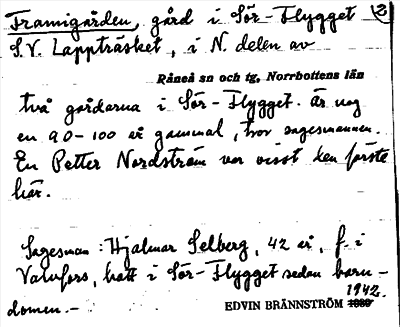 Framigården, gård i Sör-Flygget (2)
S.V. Lappträsket, i N. delen av
Råneå sn och tg, Norrbottens län
två gårdarna i Sör-Flygget. Är nog
en 90-100 år gammal, tror sagesmannen.
En Petter Nordström var visst den förste
här.
Sagesman: Hjalmar Selberg, 42 år, f. i
Varufors, bott i Sör-Flygget sedan barn-
domen.-
1942.
EDVIN BRÄNNSTRÖM